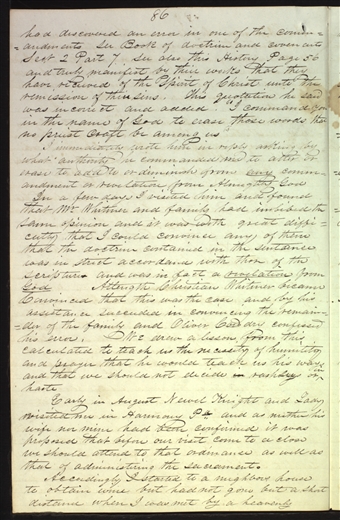 86
had discovered an error in one of the comm-
andments See Book of doctrine and covenants
Sect 2 Part 7. See also this History Page 56
"and truly manifest by their works that they
have received of the Spirit of Christ unto the
remission of their sins." This quotation he said
was incorrect and added "I command you
in the name of God to erase those words that
no priest craft be among us"
I immediately wrote him in reply asking by
what authority he commanded me to alter or
erase to add to or diminish from any comm-
andment or revelation from Almighty God
In a few days I visited him and found
that Mr Whitmer and family had imbibed the
same opinion and it was with great diffi-
culty that I could convince any of them
that the doctrine contained in the sentence
was in strict accordance with that of the
Scriptures and was in fact a revelation from
God Although Christian Whitmer became
convinced that this was the case and by his
assistance succeeded in convincing the remain-
der of the family and Oliver Cowdery confessed
his error. We drew a lesson from this
calculated to teach us the necessity of humility
and prayer that he would teach us his ways
and that we should not decide rashly or in
haste
Early in August Newel Knight and Lady
visited me in Harmony Pa and as neither his
wife nor mine had been confirmed it was
proposed that before our visit come to a close
we should attend to that ordinance as well as
that of administering the sacrament.
Accordingly I started to a neighbors house
to obtain wine but had not gone but a short
distance when I was met by a heavenly